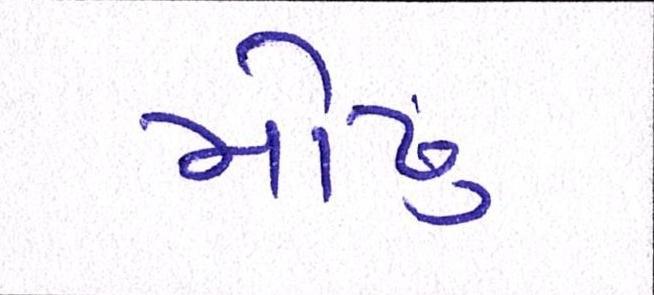 મોઢું